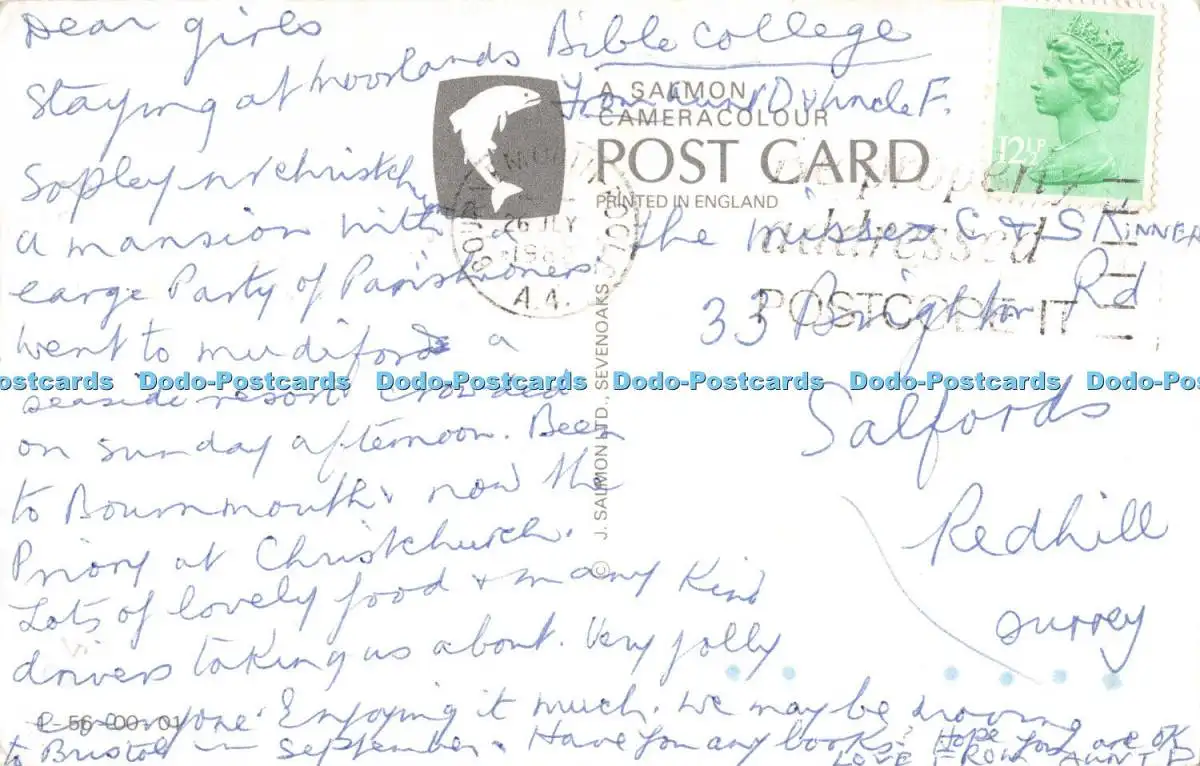 Dear girls
Staying at Moorlands Bible College
From Aunt D & Uncle F.
Sopley nr Christch
a mansion with a
large Party of Parishioners
went to mudiford a
seaside resort crowded
on sunday afternoon. Been
to Bournmouth & now the
Priory at Christchurch.
Lots of lovely food & many Kind
drivers taking us about. Very jolly
everyone. Enjoying it much. We may be moving
to Bristol in September. Have you any books? Hope you are OK
LOVE FROM AUNT D
A SALMON
CAMERACOLOUR
POST CARD
PRINTED IN ENGLAND
© J. SALMON LTD., SEVENOAKS
12½P
26 JLY
A.4.
properly
addressed
POSTCODE IT
The Misses C & S KINNER
33 Brighton Rd
Salfords
Redhill
Surrey
Dodo-Postcards Dodo-Postcards Dodo-Postcards Dodo-Postcards Dodo-Postcards